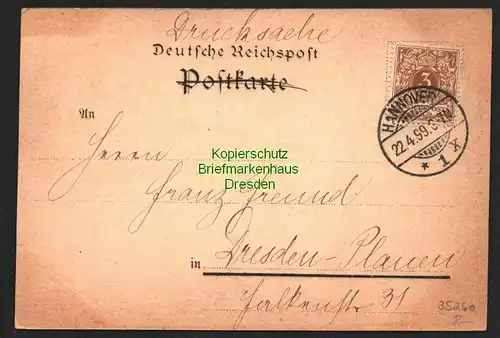 Drucksache
Deutsche Reichspost
Postkarte
3
HANNOVER
22.4.99.
* 1 x
An
Herrn
Kopierschutz
Briefmarkenhaus
Dresden
Franz Freund
in Dresden-Plauen
Falkenstr 31
3526a